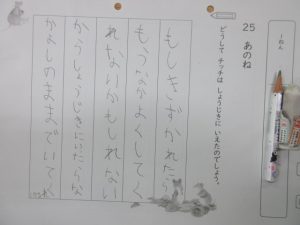 一ねん
25 あのね
どうして チッチは しょうじきに いえたのでしょう。
もしきずかれたら
もうなかよくしてく
れないかもしれない
からしょうじきにいったらな
かよしのままでいてくれ